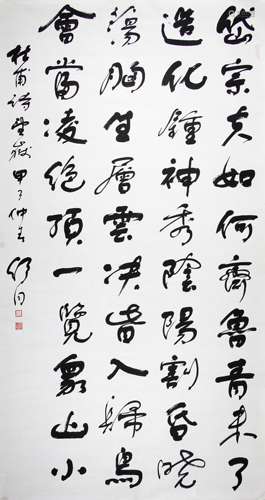 岱宗夫如何齊魯青未了
造化鍾神秀陰陽割昏曉
蕩胸生層雲決眥入歸鳥
會當凌絕頂一覽眾山小
杜甫詩望嶽 甲子仲春 舒同